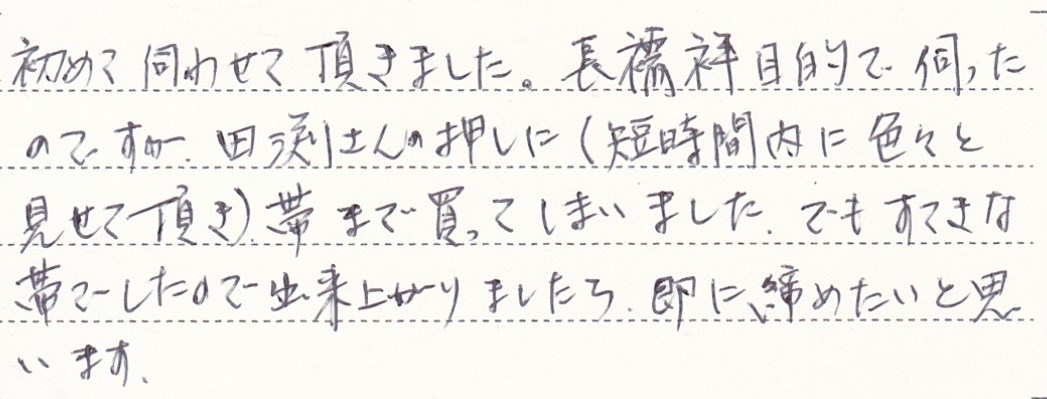 初めて伺わせて頂きました。長襦袢目的で伺った
のですが、田渕さんの押しに（短時間内に色々と
見せて頂き）、帯まで買ってしまいました。でもすてきな
帯でしたので出来上がりましたら、即に、締めたいと思
います。